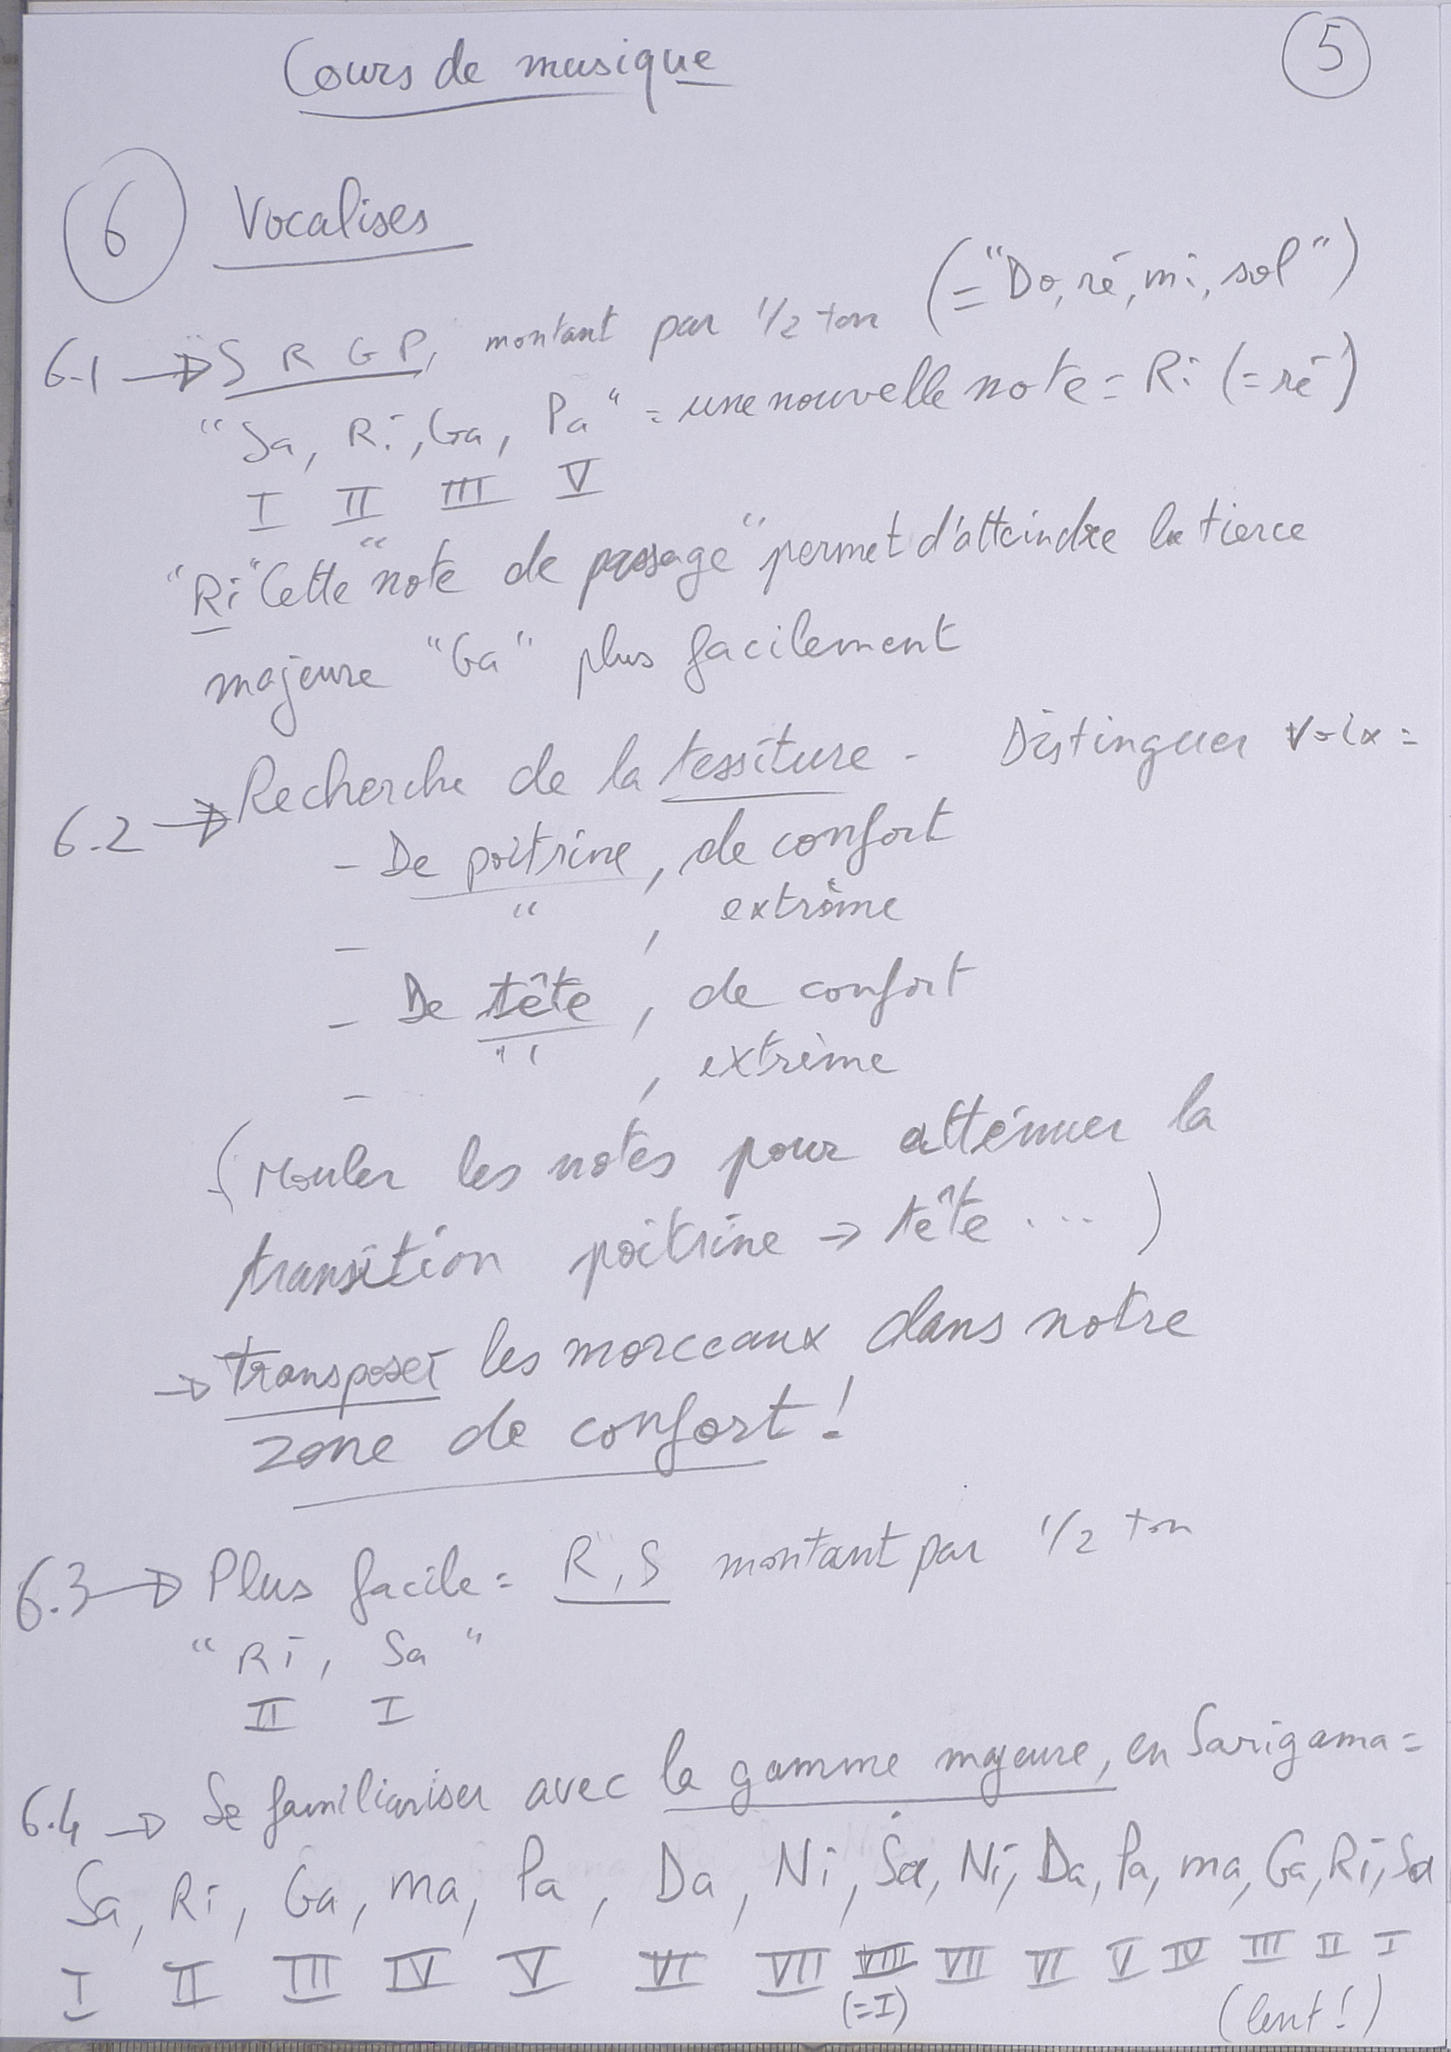 Cours de musique
5
6 Vocalises
6.1 → S R G P, montant par 1/2 ton (= "Do, ré, mi, sol")
"Sa, Ri, Ga, Pa" = une nouvelle note = Ri (= ré)
I II III V
"Ri" Cette "note de passage" permet d'atteindre la tierce
majeure "Ga" plus facilement
6.2 → Recherche de la tessiture - Distinguer voix =
- De poitrine, de confort
- " , extrême
- De tête, de confort
- " , extrême
(Rouler les notes pour atténuer la
transition poitrine → tête ...)
→ transposer les morceaux dans notre
zone de confort !
6.3 → Plus facile = R, S montant par 1/2 ton
"Ri, Sa"
II I
6.4 → Se familiariser avec la gamme majeure, en Sarigama =
Sa, Ri, Ga, ma, Pa, Da, Ni, Ṡa, Ni, Da, Pa, ma, Ga, Ri, Sa
I II III IV V VI VII VIII VII VI V IV III II I
(=I) (lent !)